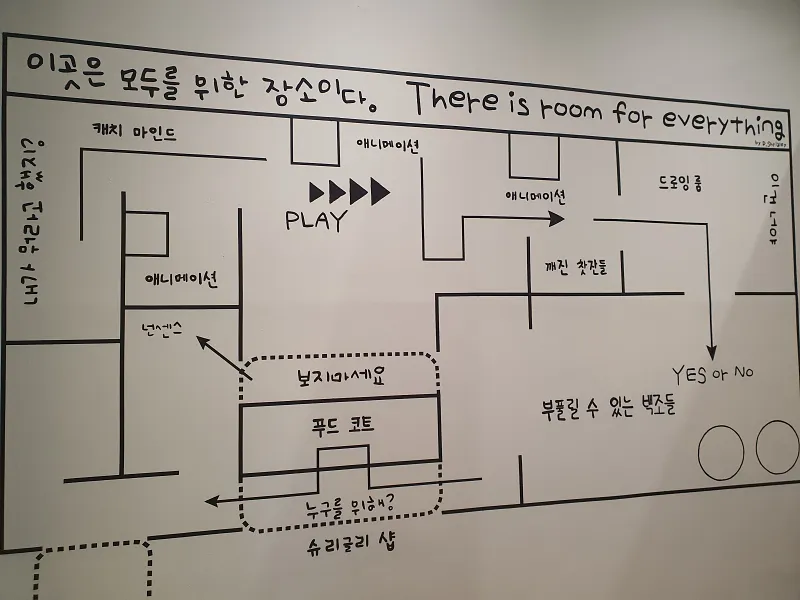 이곳은 모두를 위한 장소이다. There is room for everything
내가 뭐라고 했지?
캐치 마인드
애니메이션
PLAY
애니메이션
드로잉룸
애니메이션
깨진 찻잔들
넌센스
보지마세요
푸드 코트
YES or NO
부풀릴 수 있는 벽조들
누구를 위해?
슈리글리 샵